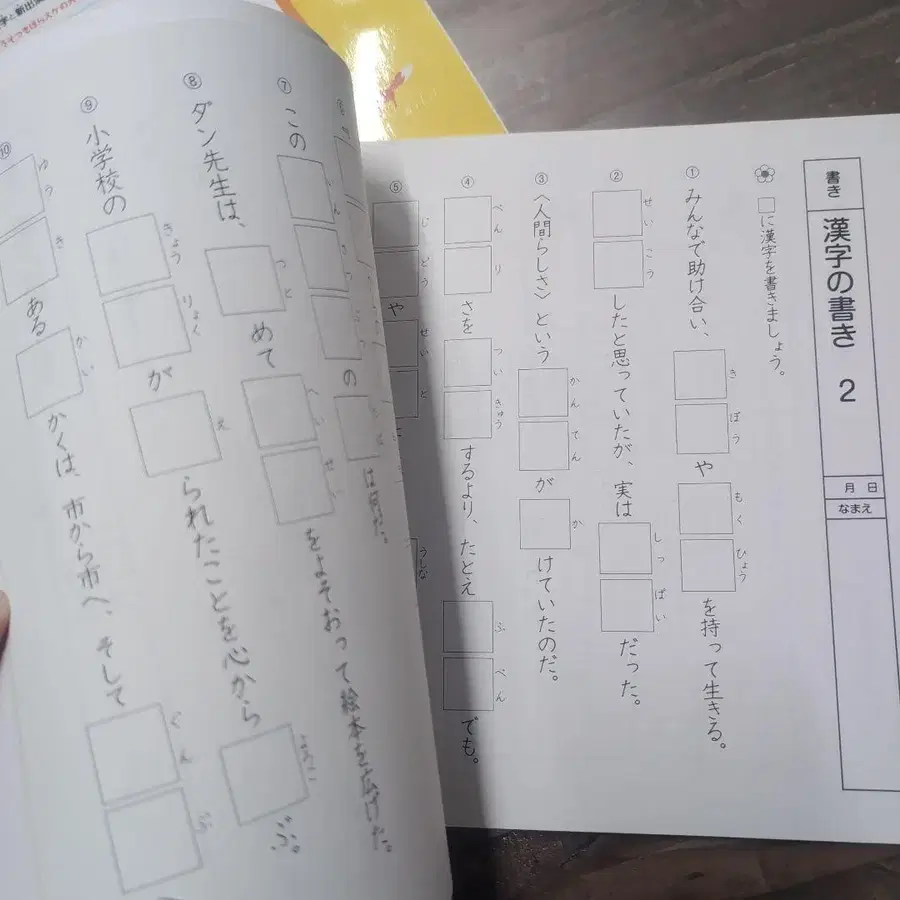 書き
漢字の書き 2
月 日
なまえ
□に漢字を書きましょう。
① みんなで助け合い、きぼうやもくひょうを持って生きる。
② せいこうしたと思っていたが、実はしっぱいだった。
③ 〈人間らしさ〉というかんてんがかけていたのだ。
④ べんりさをついきゅうするより、たとえふべんでも。
⑤ じどうやせいと
うしな
⑥
⑦ この
の
は何だ。
⑧ ダン先生は、つとめてへいせいをよそおって絵本を広げた。
⑨ 小学校のきょうりょくがえられたことを心からよろこぶ。
⑩ ゆうきあるかいかくは、市から市へ、そしてぐんぶ